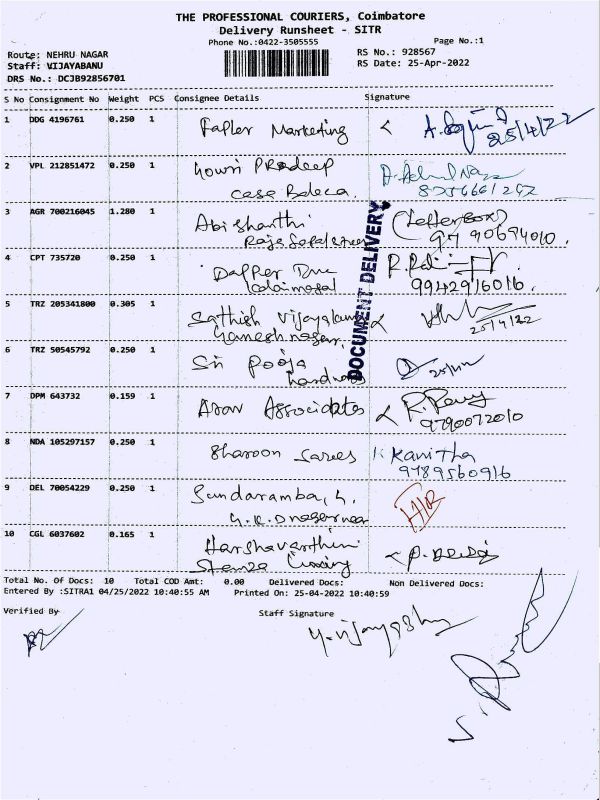 THE PROFESSIONAL COURIERS, Coimbatore
Delivery Runsheet - SITR
Phone No.:0422-3505555
Page No.:1
Route: NEHRU NAGAR
RS No.: 928567
Staff: VIJAYABANU
RS Date: 25-Apr-2022
DRS No.: DCJB92856701
S No Consignment No Weight PCS Consignee Details Signature
1 DDG 4196761 0.250 1 Marketing
25/4/22
2 VPL 212851472 0.250 1 Gowri Pradeep
3 AGR 700216045 1.280 1 Abi Shanthi (Letter Box)
97 90694010.
4 CPT 735720 0.250 1
9942916016.
DOCUMENT DELIVERY
5 TRZ 205341800 0.305 1 Sathish
Ganesh nagar, 25/4/22
6 TRZ 50545792 0.250 1 Sri Pooja
7 DPM 643732 0.159 1 Arav Associates
9790072010
8 NDA 105297157 0.250 1 Sharoon Sarees K Kavitha
9789560916
9 DEL 70054229 0.250 1 Sundaramba,
10 CGL 6037602 0.165 1 Harshavarthini
Total No. Of Docs: 10 Total COD Amt: 0.00 Delivered Docs: Non Delivered Docs:
Entered By :SITRA1 04/25/2022 10:40:55 AM Printed On: 25-04-2022 10:40:59
Verified By
Staff Signature